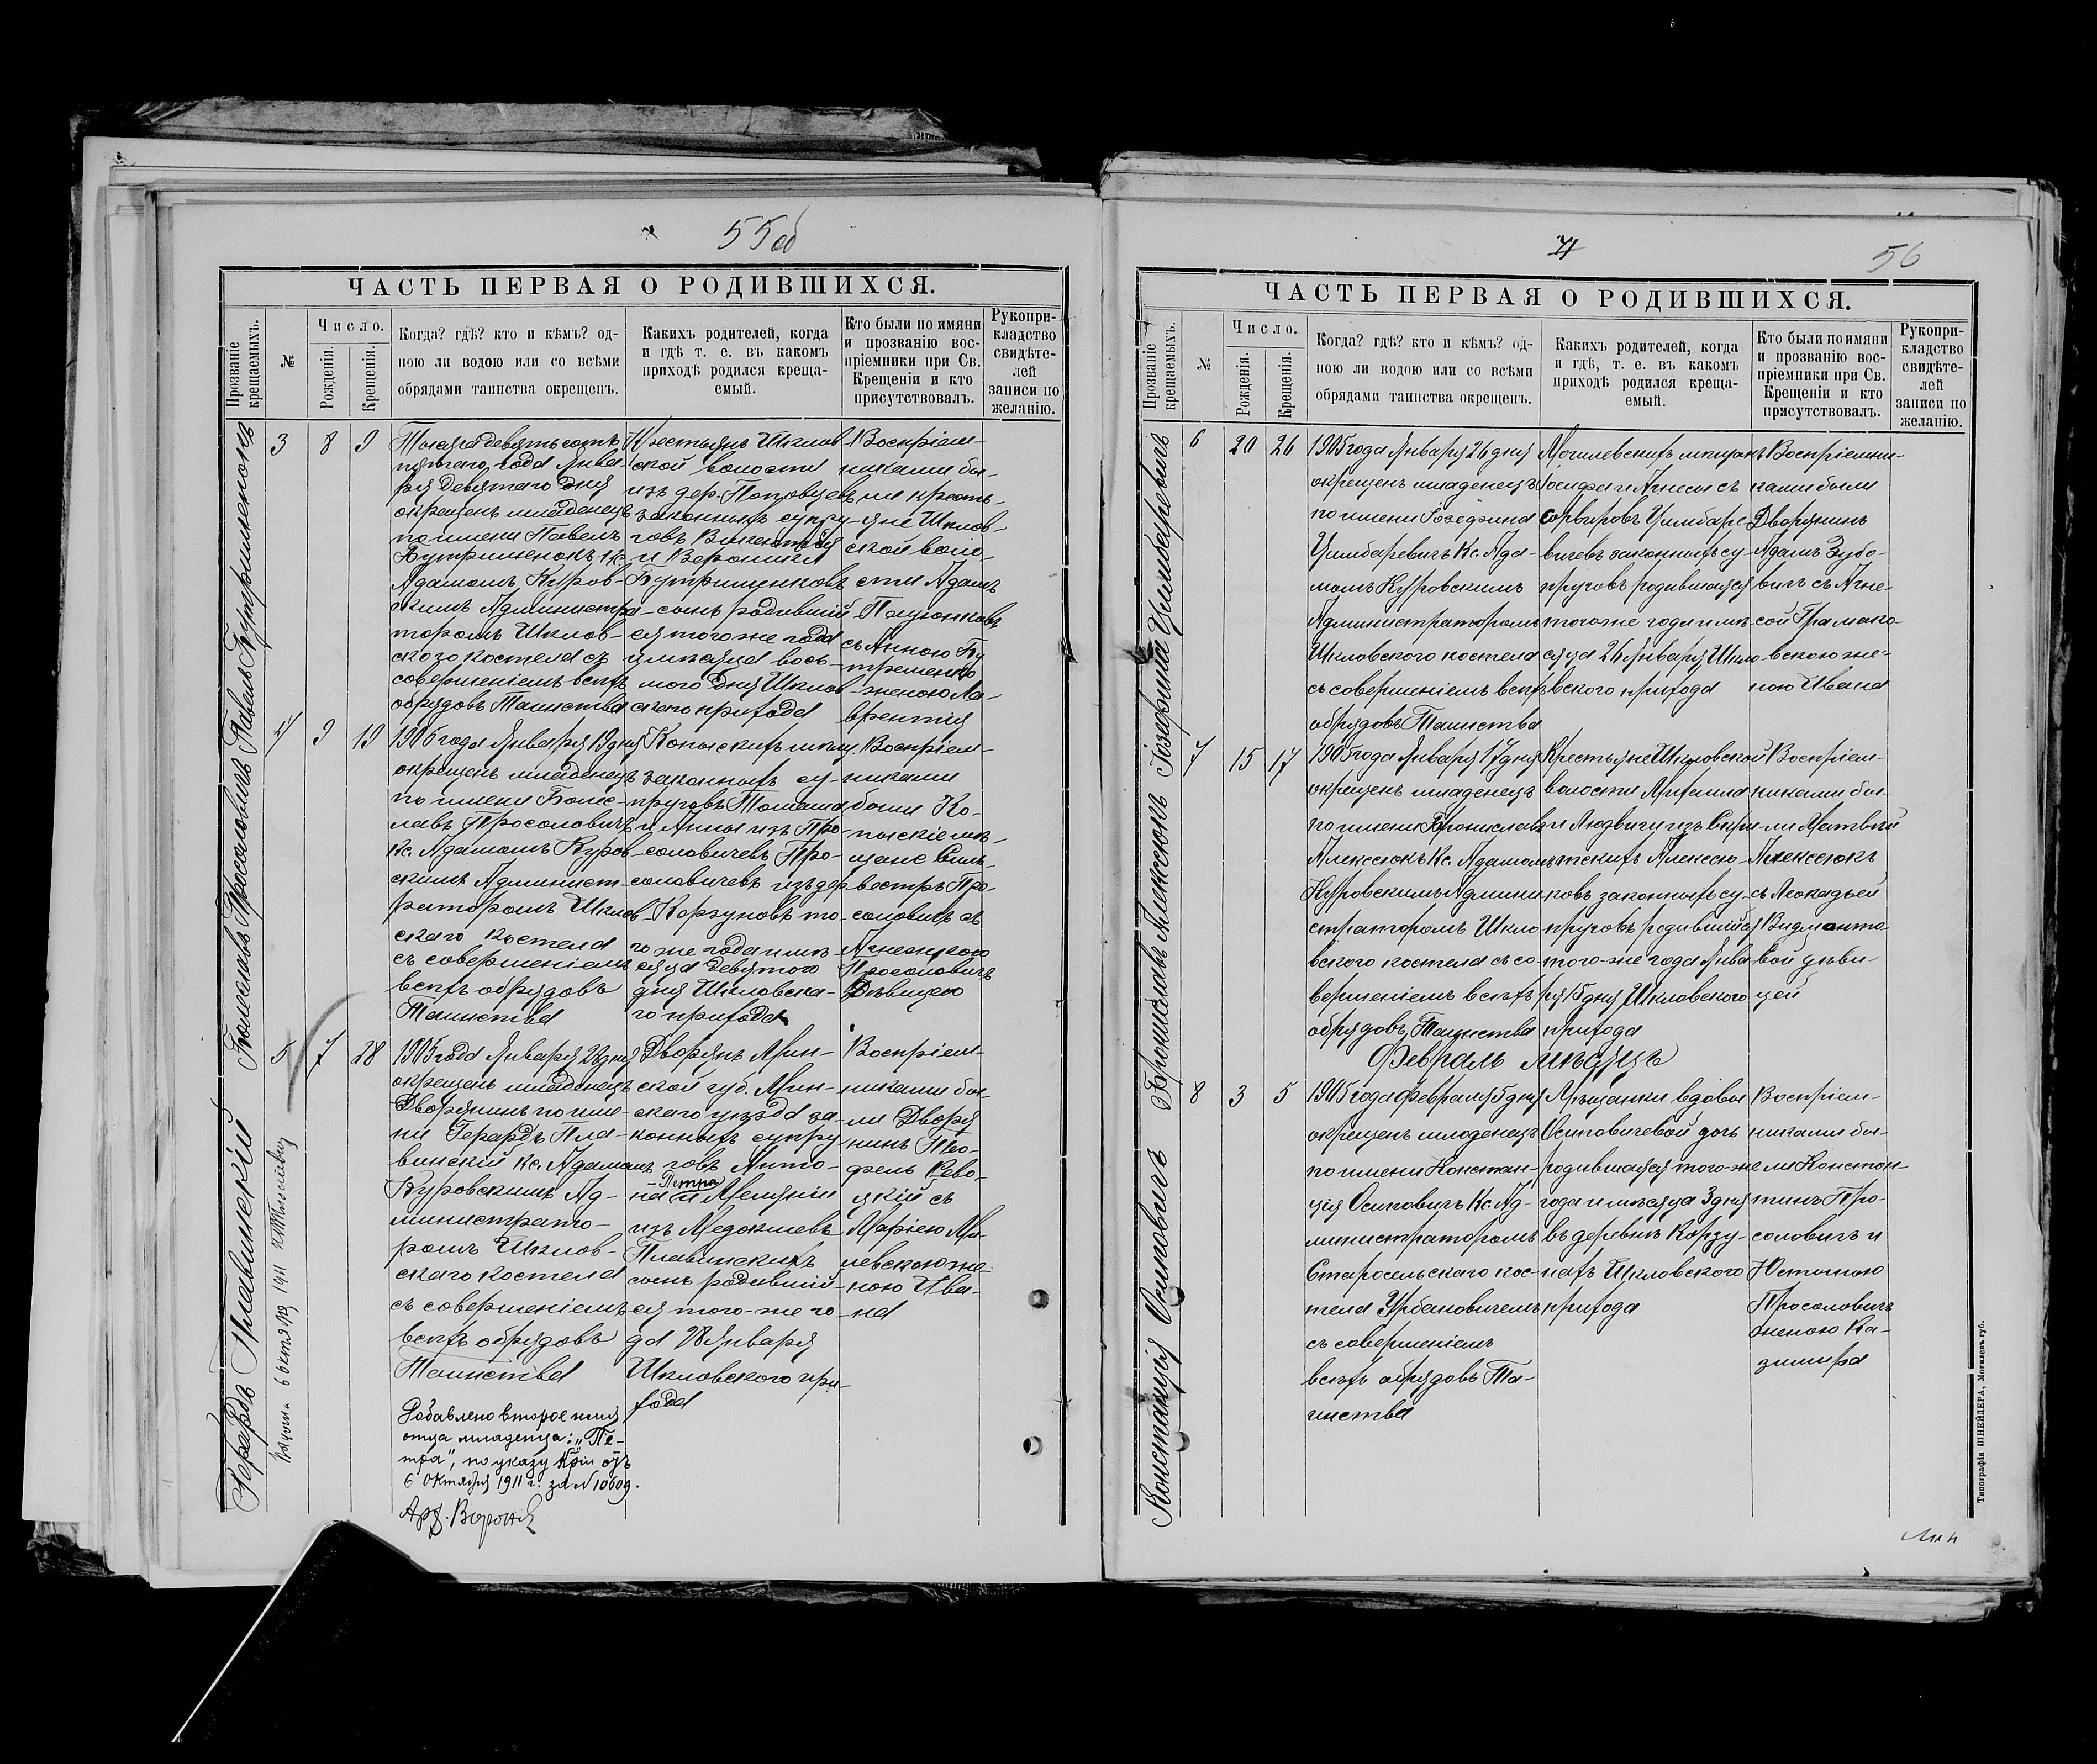 55об
ЧАСТЬ ПЕРВАЯ О РОДИВШИХСЯ.
Прозваніе крещаемыхъ.
№
Число.
Рожденія.
Крещенія.
Когда? гдѣ? кто и кѣмъ? од-
ною ли водою или со всѣми
обрядами таинства окрещенъ.
Какихъ родителей, когда
и гдѣ т. е. въ какомъ
приходѣ родился креща-
емый.
Кто были по имяни
и прозванію вос-
пріемники при Св.
Крещеніи и кто
присутствовалъ.
Рукопри-
кладство
свидѣте-
лей
записи по
желанію.
Павелъ Бутрименокъ
3 8 9
Тысяча девятьсотъ
пятаго года Янва-
ря девятаго дня
окрещенъ младенецъ
по имени Павелъ
Бутрименокъ Кс.
Адамомъ Куров-
скимъ Администра-
торомъ Шклов-
скаго костела съ
совершеніемъ всѣхъ
обрядовъ Таинства
Крестьянъ Шклов-
ской волости
изъ дер. Поповцевъ
законныхъ супру-
говъ Викентія
и Вероники
Бутрименковъ
сынъ родившій-
ся того же года
и мѣсяца вось-
мого дня Шклов-
скаго прихода
Воспріем-
никами бы-
ли кресть-
яне Шклов-
ской воло-
сти Адамъ
съ Анною Бу-
тременко
женою Ла-
врентія
Болеславъ Просоловичъ
4 9 19
1905 года Января 19 дня
окрещенъ младенецъ
по имени Болес-
лавъ Просоловичъ
Кс. Адамомъ Куров-
скимъ Админист-
раторомъ Шклов-
скаго костела
съ совершеніемъ
всѣхъ обрядовъ
Таинства
Копыскихъ мѣщ.
законныхъ су-
пруговъ Томаша
и Анны изъ Про-
соловичевъ Про-
соловичевъ изъ дер.
Корзуновъ то-
го же года и мѣ-
сяца девятого
дня Шкловска-
го прихода
Воспріем-
никами
были Ко-
пыскіе мѣ-
щане Силь-
вестръ Про-
соловичъ съ
Просоловичъ
Дѣвицею
Герардъ Плавинскій
6 октября 1911
5 7 28
1905 года Января 28 дня
окрещенъ младенецъ
Дворянинъ по име-
ни Герардъ Пла-
винскій Кс. Адамомъ
Куровскимъ Ад-
министрато-
ромъ Шклов-
скаго костела
съ совершеніемъ
всѣхъ обрядовъ
Таинства
Добавлено второе имя
отца младенца: „Пе-
тра", по указу Кріи отъ
6 Октября 1911 г. за № 10609.
Дворянъ Мин-
ской губ. Мин-
скаго уѣзда за-
конныхъ супру-
говъ Анто-
на – Петра и Меляніи
изъ Медокшевъ
Плавинскихъ
сынъ родившій-
ся того-же го-
да 28 Января
Шкловского при-
хода
Воспріем-
никами бы-
ли Дворя
нинъ Тео-
филь Рево-
цкій съ
Маріею Ми-
левскою же-
ною Ива-
на
4
56
ЧАСТЬ ПЕРВАЯ О РОДИВШИХСЯ.
Прозваніе крещаемыхъ.
№
Число.
Рожденія.
Крещенія.
Когда? гдѣ? кто и кѣмъ? од-
ною ли водою или со всѣми
обрядами таинства окрещенъ.
Какихъ родителей, когда
и гдѣ, т. е. въ какомъ
приходѣ родился креща-
емый.
Кто были по имяни
и прозванію вос-
пріемники при Св.
Крещеніи и кто
присутствовалъ.
Рукопри-
кладство
свидѣте-
лей
записи по
желанію.
Іозефина Цимбаревичъ
6 20 26
1905 года Января 26 дня
окрещенъ младенецъ
по имени Іозефина
Цимбаревичъ Кс. Ада-
момъ Куровскимъ
Администраторомъ
Шкловского костела
съ совершеніемъ всѣхъ
обрядовъ Таинства
Могилевскихъ мѣщанъ
Іосифа и Агнесы съ
Цимбаре-
вичевъ законныхъ су-
пруговъ родившаяся
того-же года и мѣ-
сяца 26 Января Шкло-
вского прихода
Воспріемни-
ками были
Дворянинъ
Адамъ Зубо-
вичъ съ Агне-
сой Грамако-
вскою же-
ною Ивана
Брониславъ Алексіюкъ
7 15 17
1905 года Января 17 дня
окрещенъ младенецъ
по имени Брониславъ
Алексіюкъ Кс. Адамомъ
Куровскимъ Админи-
страторомъ Шкло-
вского костела съ со-
вершеніемъ всѣхъ
обрядовъ Таинства
Крестьяне Шкловской
волости Михаила
и Людвиги изъ Скри-
тскихъ Алексею-
ковъ законныхъ су-
пруговъ родившійся
того-же года Янва-
ря 15 дня Шкловского
прихода
Воспріем-
никами бы-
ли Матвѣй
Алексеюкъ
съ Леокадьей
Видманто-
вой дѣви-
цей
Февраль мѣсяцъ
Констанція Осиповичъ
8 3 5
1905 года февраля 5 дня
окрещенъ младенецъ
по имени Констан-
ція Осиповичъ Кс. Ад-
министраторомъ
Старосельскаго кос-
тела Урбановичемъ
съ совершеніемъ
всѣхъ обрядовъ Та-
инства
Мѣщанки вдовы
Осиповичевой дочь
родившаяся того-же
года и мѣсяца 3 дня
въ деревнѣ Корзу-
нахъ Шкловского
прихода
Воспріем-
никами бы-
ли Констан-
тинъ Про-
соловичъ и
Юстиною
Просоловичъ
женою Ка-
зимира
Типографія ШНЕЙДЕРА, Могилевъ губ.